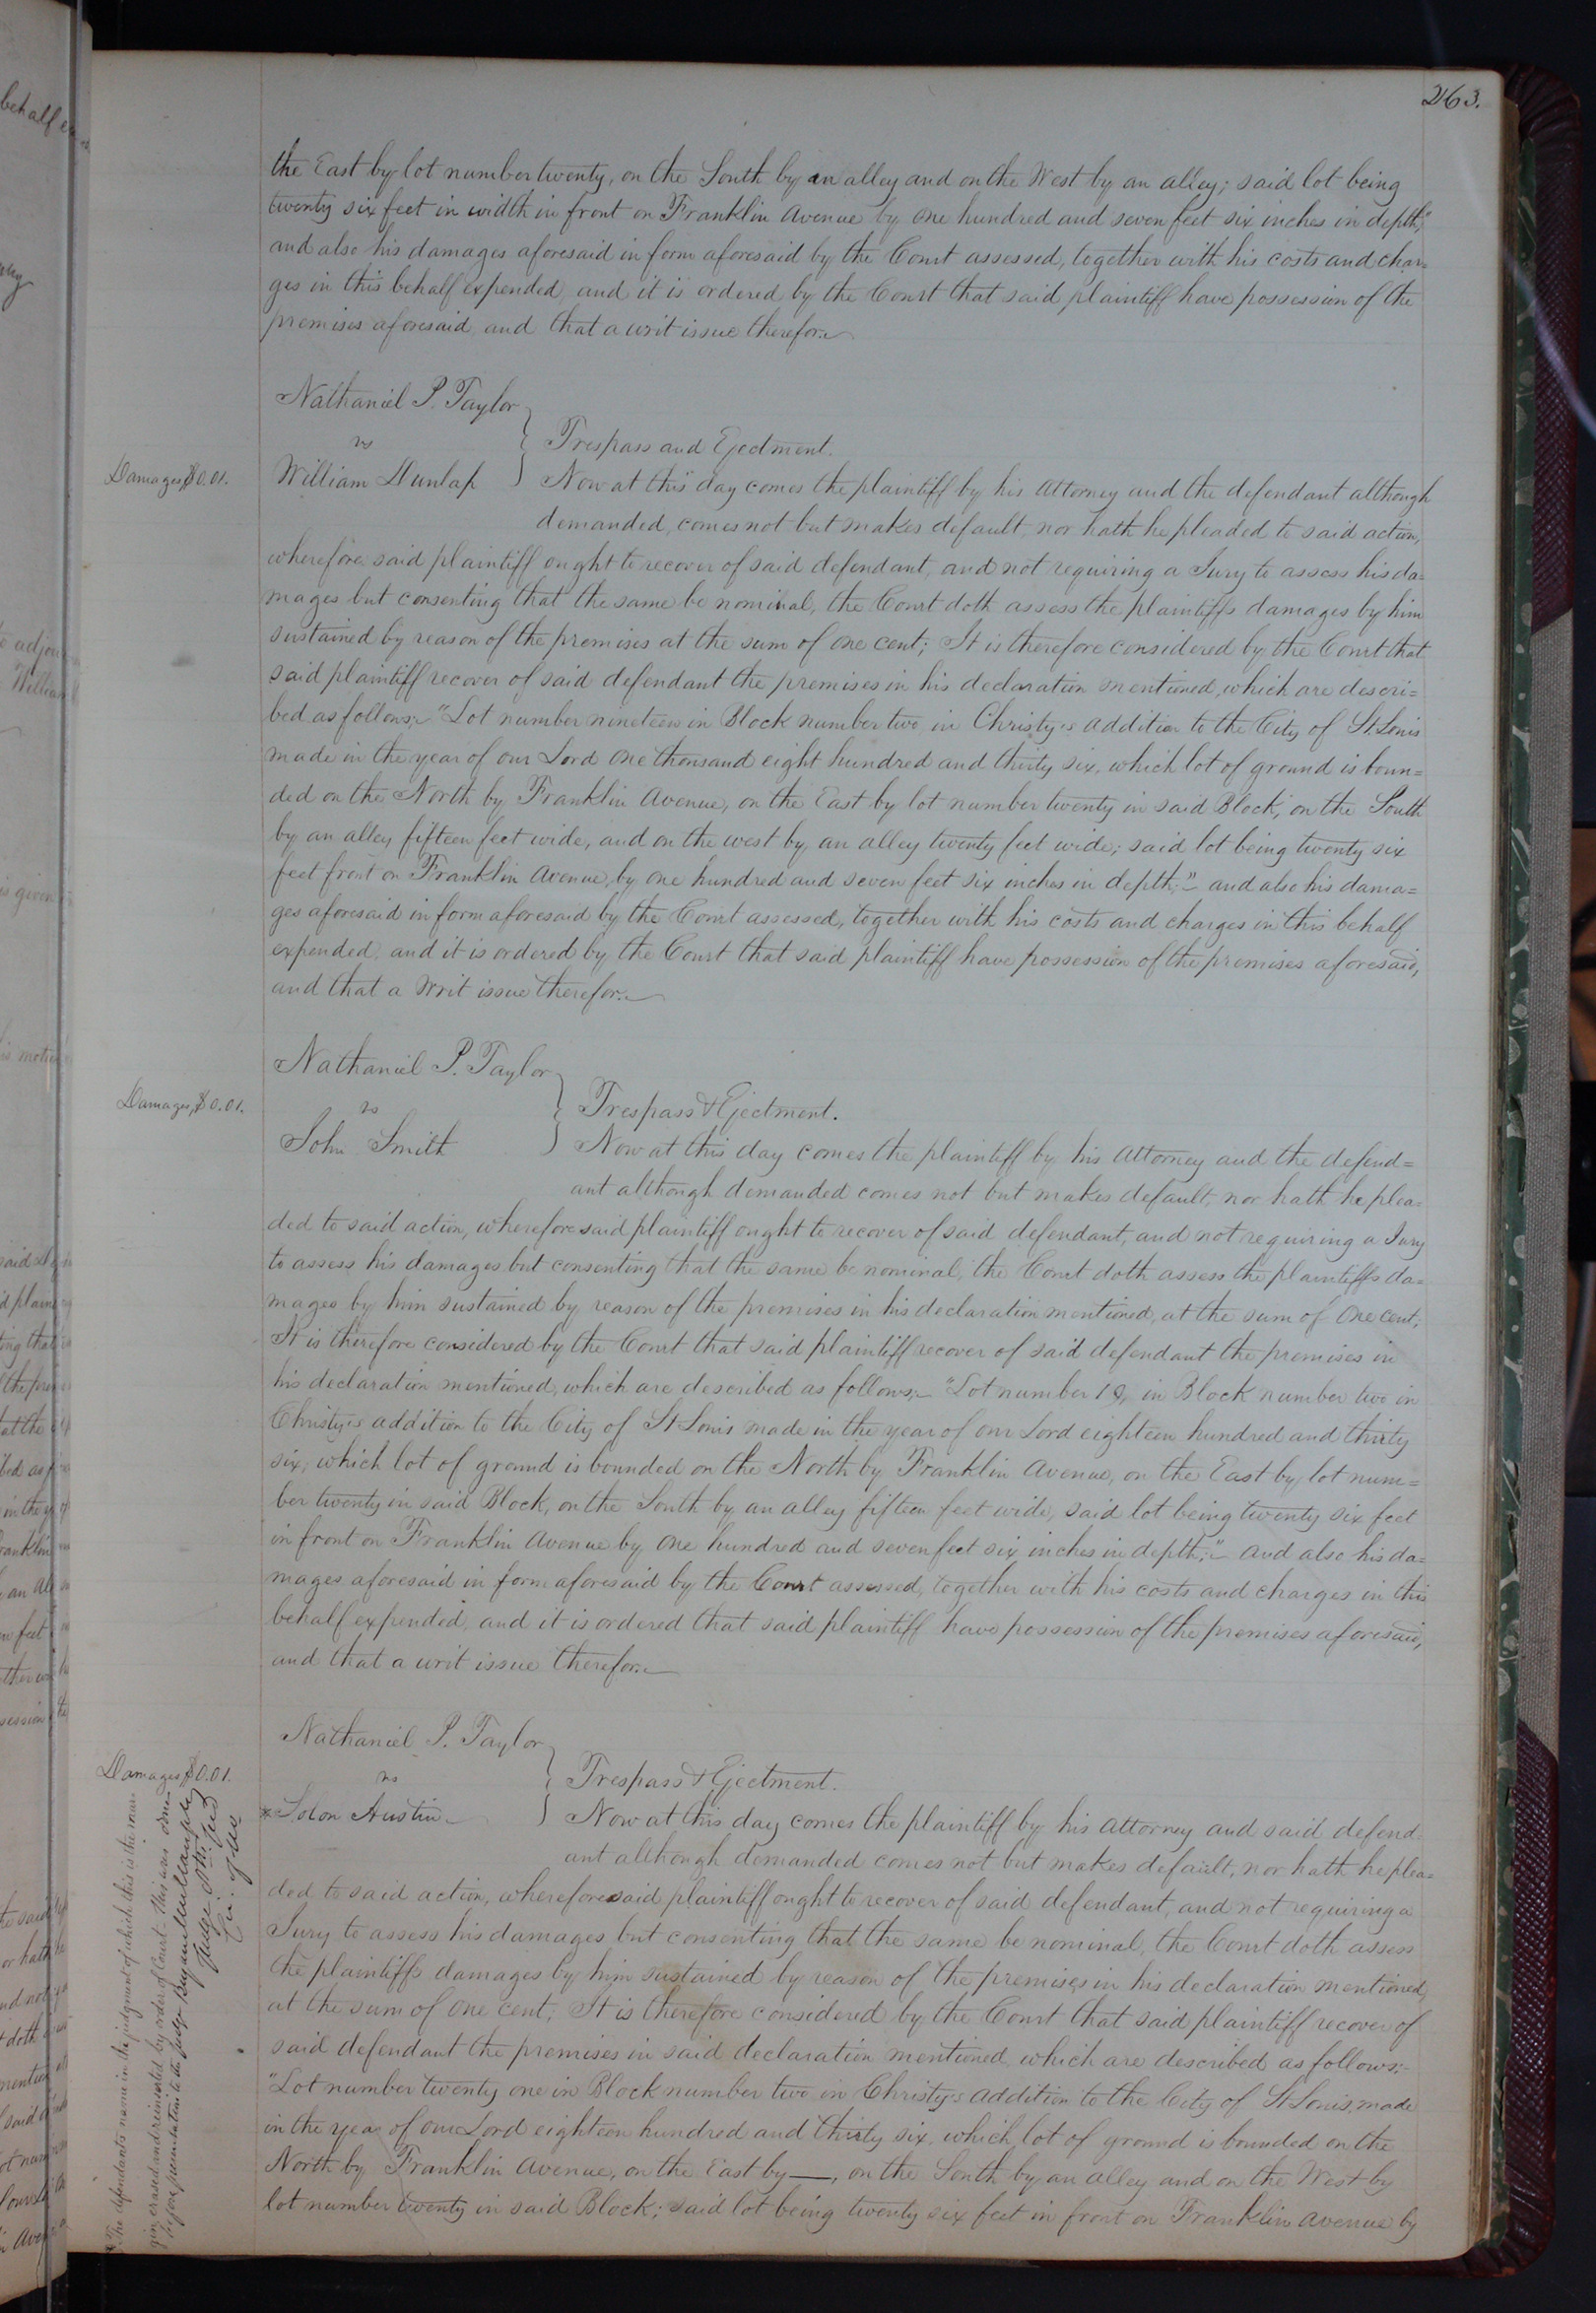 263.
the East by lot number twenty, on the South by an alley and on the West by an alley; said lot being
twenty six feet in width in front on Franklin Avenue by one hundred and seven feet six inches in depth;"
and also his damages aforesaid in form aforesaid by the Court assessed, together with his costs and char=
ges in this behalf expended, and it is ordered by the Court that said plaintiff have possession of the
premises aforesaid and that a writ issue therefor.
Nathaniel P. Taylor
vs
Trespass and Ejectment.
Damages, $0.01.
William Dunlap
Now at this day comes the plaintiff by his Attorney and the defendant although
demanded, comes not but makes default, nor hath he pleaded to said action,
wherefore said plaintiff ought to recover of said defendant, and not requiring a Jury to assess his da=
mages but consenting that the same be nominal, the Court doth assess the plaintiffs damages by him
sustained by reason of the premises at the sum of one cent; It is therefore considered by the Court that
said plaintiff recover of said defendant the premises in his declaration mentioned, which are descri=
bed as follows;- "Lot number nineteen in Block number two in Christy's addition to the City of St. Louis
made in the year of our Lord one thousand eight hundred and thirty six, which lot of ground is boun=
ded on the North by Franklin Avenue, on the East by lot number twenty in said Block, on the South
by an alley fifteen feet wide, and on the west by an alley twenty feet wide; said lot being twenty six
feet front on Franklin Avenue, by one hundred and seven feet six inches in depth;"- and also his dama=
ges aforesaid in form aforesaid by the Court assessed, together with his costs and charges in this behalf
expended, and it is ordered by the Court that said plaintiff have possession of the premises aforesaid,
and that a Writ issue therefor.
Nathaniel P. Taylor
Damages, $0.01.
vs
Trespass & Ejectment.
John Smith
Now at this day comes the plaintiff by his Attorney and the defend=
ant although demanded comes not but makes default, nor hath he plea=
ded to said action, wherefore said plaintiff ought to recover of said defendant, and not requiring a Jury
to assess his damages but consenting that the same be nominal, the Court doth assess the plaintiffs da=
mages by him sustained by reason of the premises in his declaration mentioned, at the sum of one cent;
It is therefore considered by the Court that said plaintiff recover of said defendant the premises in
his declaration mentioned, which are described as follows;- "Lot number 19, in Block number two in
Christy's addition to the City of St Louis made in the year of our Lord eighteen hundred and thirty
six, which lot of ground is bounded on the North by Franklin Avenue, on the East by lot num=
ber twenty in said Block, on the South by an alley fifteen feet wide, said lot being twenty six feet
in front on Franklin Avenue by one hundred and seven feet six inches in depth;"- and also his da=
mages aforesaid in form aforesaid by the Court assessed, together with his costs and charges in this
behalf expended, and it is ordered that said plaintiff have possession of the premises aforesaid,
and that a writ issue therefor.
Nathaniel P. Taylor
Damages, $0.01.
vs
Trespass & Ejectment.
*Solon Austin
Now at this day comes the plaintiff by his attorney and said defend=
ant although demanded comes not but makes default, nor hath he plea=
ded to said action, wherefore said plaintiff ought to recover of said defendant, and not requiring a
Jury to assess his damages but consenting that the same be nominal, the Court doth assess
the plaintiffs damages by him sustained by reason of the premises in his declaration mentioned,
at the sum of one cent; It is therefore considered by the Court that said plaintiff recover of
said defendant the premises in said declaration mentioned, which are described as follows:-
"Lot number twenty one in Block number two in Christy's addition to the City of St Louis, made
in the year of our Lord eighteen hundred and thirty six, which lot of ground is bounded on the
North by Franklin Avenue, on the East by —, on the South by an alley and on the West by
lot number twenty in said Block; said lot being twenty six feet in front on Franklin Avenue by
*The defendants name in the judgment of which this is the mar-
gin, erased and reinserted by order of Court. This was done
before presentation to the judge
Judge